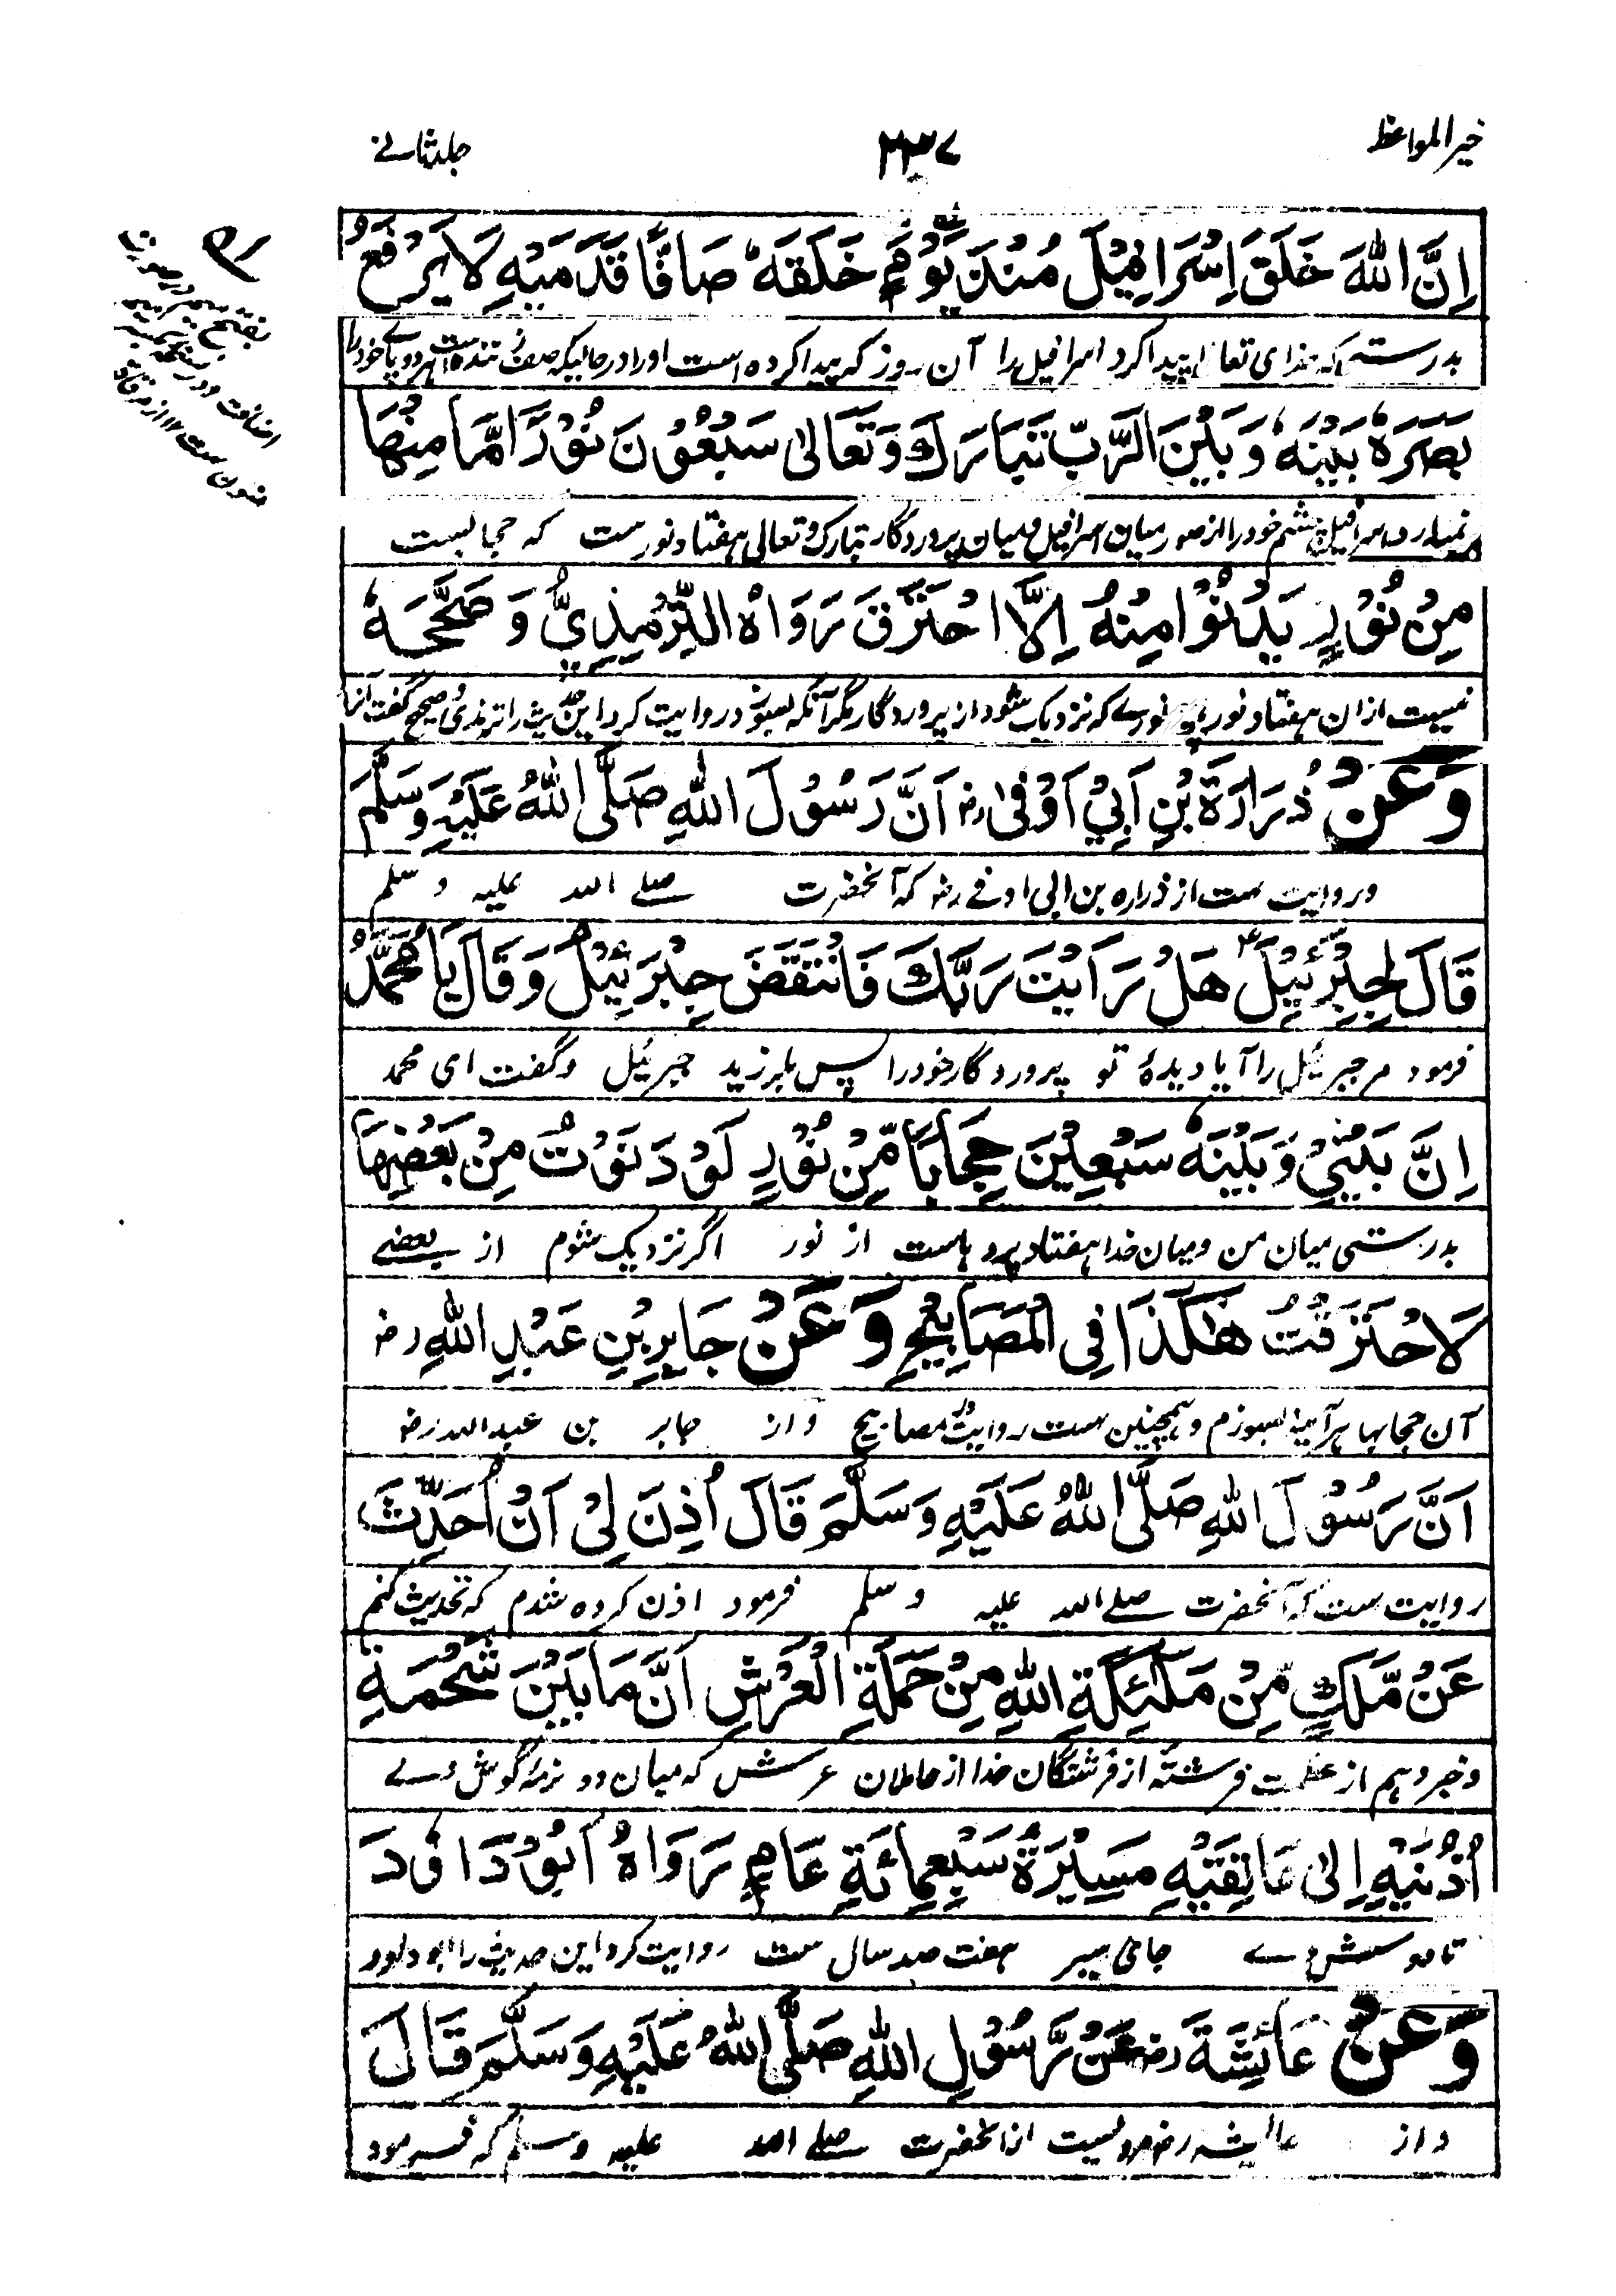 خیر المواعظ
۲۳۷
جلد ثانے
اِنَّ اللّٰهَ خَلَقَ اِسْرَافِيْلَ مُنْذُ يَوْمٍ خَلَقَهٗ صَافًّا قَدَمَيْهِ لَا يَرْفَعُ
بدرستے که خدای تعالی پیدا کرد اسرافیل را آن روز که پیدا کرده است او را در حالیکه صف کننده است هر دو پاے خود را
بَصَرَهٗ بَيْنَهٗ وَبَيْنَ الرَّبِّ تَبَارَكَ وَتَعَالٰى سَبْعُوْنَ نُوْرًا مَّا مِنْهَا
نمیدارد اسرافیل چشم خود را از صور میان اسرافیل و میان پروردگار تبارک و تعالی هفتاد نور ست که حجابست
مِنْ نُوْرٍ يَدْنُوْا مِنْهُ اِلَّا احْتَرَقَ رَوَاهُ التِّرْمِذِيُّ وَصَحَّحَهٗ
نیست ازان هفتاد نور نورے که نزدیک شود از پروردگار مگر آنکه بسوزد روایت کرد این حدیث را ترمذی و صحیح گفت آنرا
وَعَنْ ذُرَارَةَ بْنِ اَبِيْ اَوْفٰى رض اَنَّ رَسُوْلَ اللّٰهِ صَلَّى اللّٰهُ عَلَيْهِ وَسَلَّمَ
و روایت ست از ذراره بن ابی اوفے رض که آنحضرت صلے الله علیه و سلم
قَالَ لِجِبْرَئِيْلَ هَلْ رَاَيْتَ رَبَّكَ فَانْتَقَضَ جِبْرَئِيْلُ وَقَالَ يَا مُحَمَّدُ
فرمود مر جبرئیل را آیا دیدهٔ تو پروردگار خود را پس بلرزید جبرئیل و گفت ای محمد
اِنَّ بَيْنِيْ وَبَيْنَهٗ سَبْعِيْنَ حِجَابًا مِّنْ نُوْرٍ لَوْ دَنَوْتُ مِنْ بَعْضِهَا
بدرستی میان من و میان خدا هفتاد پردهاست از نور اگر نزدیک شوم از بعضے
لَاحْتَرَقْتُ هٰكَذَا فِى الْمَصَابِيْحِ وَعَنْ جَابِرِ بْنِ عَبْدِ اللّٰهِ رض
آن حجابها هر آیینه بسوزم و همچنین ست روایت در مصابیح و از جابر بن عبدالله رض
اَنَّ رَسُوْلَ اللّٰهِ صَلَّى اللّٰهُ عَلَيْهِ وَسَلَّمَ قَالَ اُذِنَ لِىْ اَنْ اُحَدِّثَ
روایت ست که آنحضرت صلے الله علیه و سلم فرمود اذن کرده شدم که تحدیث کنم
عَنْ مَّلَكٍ مِّنْ مَلٰئِكَةِ اللّٰهِ مِنْ حَمَلَةِ الْعَرْشِ اَنَّ مَا بَيْنَ شَحْمَةِ
و خبر دهم از عظمت فرشته از فرشتگان خدا از حاملان عرش که میان دو نرمهٔ گوش وے
اُذُنَيْهِ اِلٰى عَاتِقَيْهِ مَسِيْرَةُ سَبْعِمِائَةِ عَامٍ رَوَاهُ اَبُوْ دَاوٗدَ
تا دوشش وے جای سیر هفت صد سال ست روایت کرد این حدیث را ابو داود
وَعَنْ عَائِشَةَ رض عَنْ رَّسُوْلِ اللّٰهِ صَلَّى اللّٰهُ عَلَيْهِ وَسَلَّمَ قَالَ
و از عائشه رض مرویست از آنحضرت صلے الله علیه و سلم که فرمود